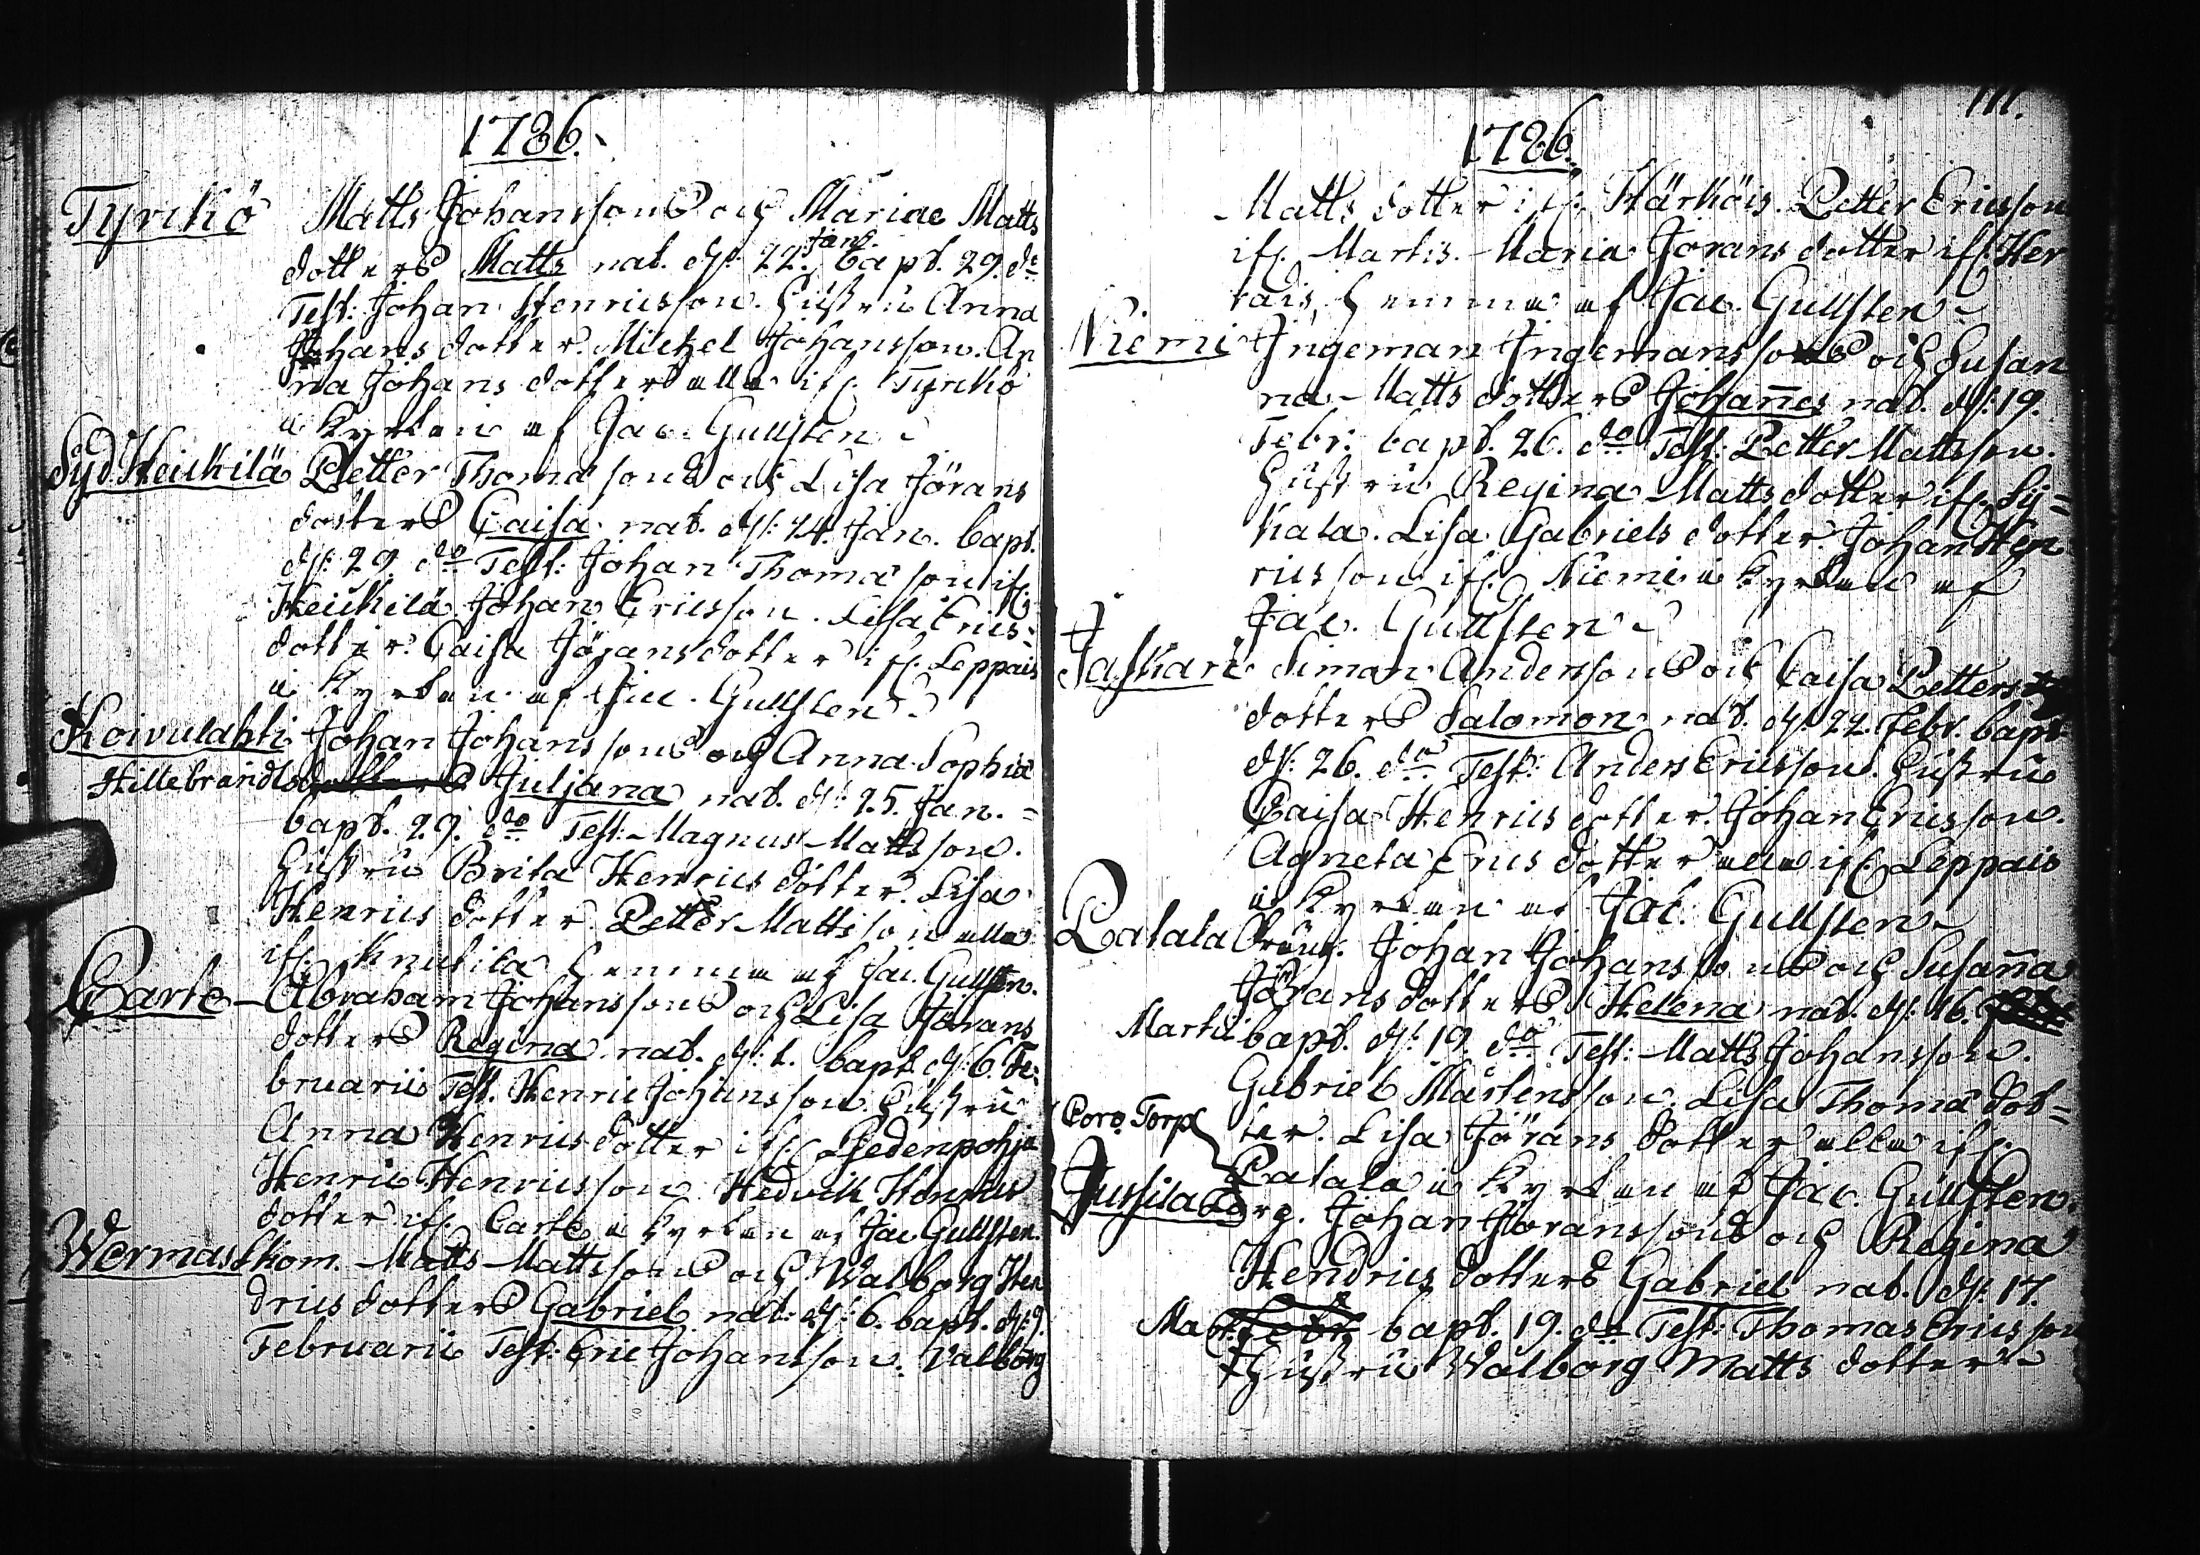 1786.
Tyrkkö Matts Johanssons och Mariae Matts
dotters Matts nat. d: 22. Janr. bapt. 29. do
Test: Johan Henricsson. hustru Anna
Johans dotter. Michel Johansson. An
na Johans dotter alla ifr. Tyrkkö
i kyrkan af Jac. Gullsten
Syd. Heickilä Petter Thomæ sons och Lisa Jörans
dotters Caisa nat. d: 24. Jan. bapt.
d: 29 do Test: Johan Thomæ son ifr.
Heickilä Johan Ericsson. Lisa Erics
dotter. Caisa Jöransdotter ifr. Leppais
i kyrkan af Jac. Gullsten
Koivulahti Johan Johanssons och Anna Sophia
Hillebrandts dotters Juljana nat. d: 25. Jan. =
bapt. 29. do Test: Magnus Mattsson.
hustru Brita Henrics dotter. Lisa
Henrics dotter. Petter Mattsson alla
ifr. Knutila hemma af Jac. Gullsten.
Carte Abraham Johanssons och Lisa Jörans
dotters Regina nat. d: 1. bapt. d: 6. Fe=
bruarii Test. Henric Johansson. hustru
Anna Henrics dotter ifr. Pedenpohja
Henric Henricsson Hedvik Henrics
dotter ifr. Carte i kyrkan af Jac Gullsten.
Wermas Skom. Matts Mattssons och Walborg Hen
drics dotters Gabriel nat: d: 6. bapt. d: 9.
Februarii Test: Eric Johansson. Valborg
111.
1786.
Matts dotter ifr. Härköis. Petter Ericsson
ifr. Martis. Maria Jörans dotter ifr. Her
rais hemma af Jac. Gullsten
Niemi Ingeman Ingemanssons och Susan
na Matts dotters Johannes nat. d: 19.
Febr. bapt. 26. do Test: Petter Mattsson.
hustru Regina Mattsdotter ifr. Sy=
kala. Lisa Gabriels dotter. Johan Hen
ricsson ifr. Niemi i kyrkan af
Jac. Gullsten
Jaskari Simon Anderssons och Caisa Petters
dotters Salomon nat. d: 22. Febr. bapt.
d: 26. do Test: Anders Ericsson. hustru
Caisa Henrics dotter. Johan Ericsson.
Agneta Erics dotter alla ifr. Leppais
i kyrkan af Jac. Gullsten
Palala Johan Johanssons och Susanna
Jörans dotters Helena nat. d: 16.
Martii bapt. d: 19. do Test: Matts Johansson.
Gabriel Mårtensson. Lisa Thomæ dot=
ter. Lisa Jörans dotter alla ifr.
Coro. Torp. Palala i kyrkan af Jac. Gullsten.
Jussila Johan Jöranssons och Regina
Hendrics dotters Gabriel nat. d: 17.
Mart. Febr. bapt. 19. do Test: Thomas Ericsson
hustru Walborg Matts dotter